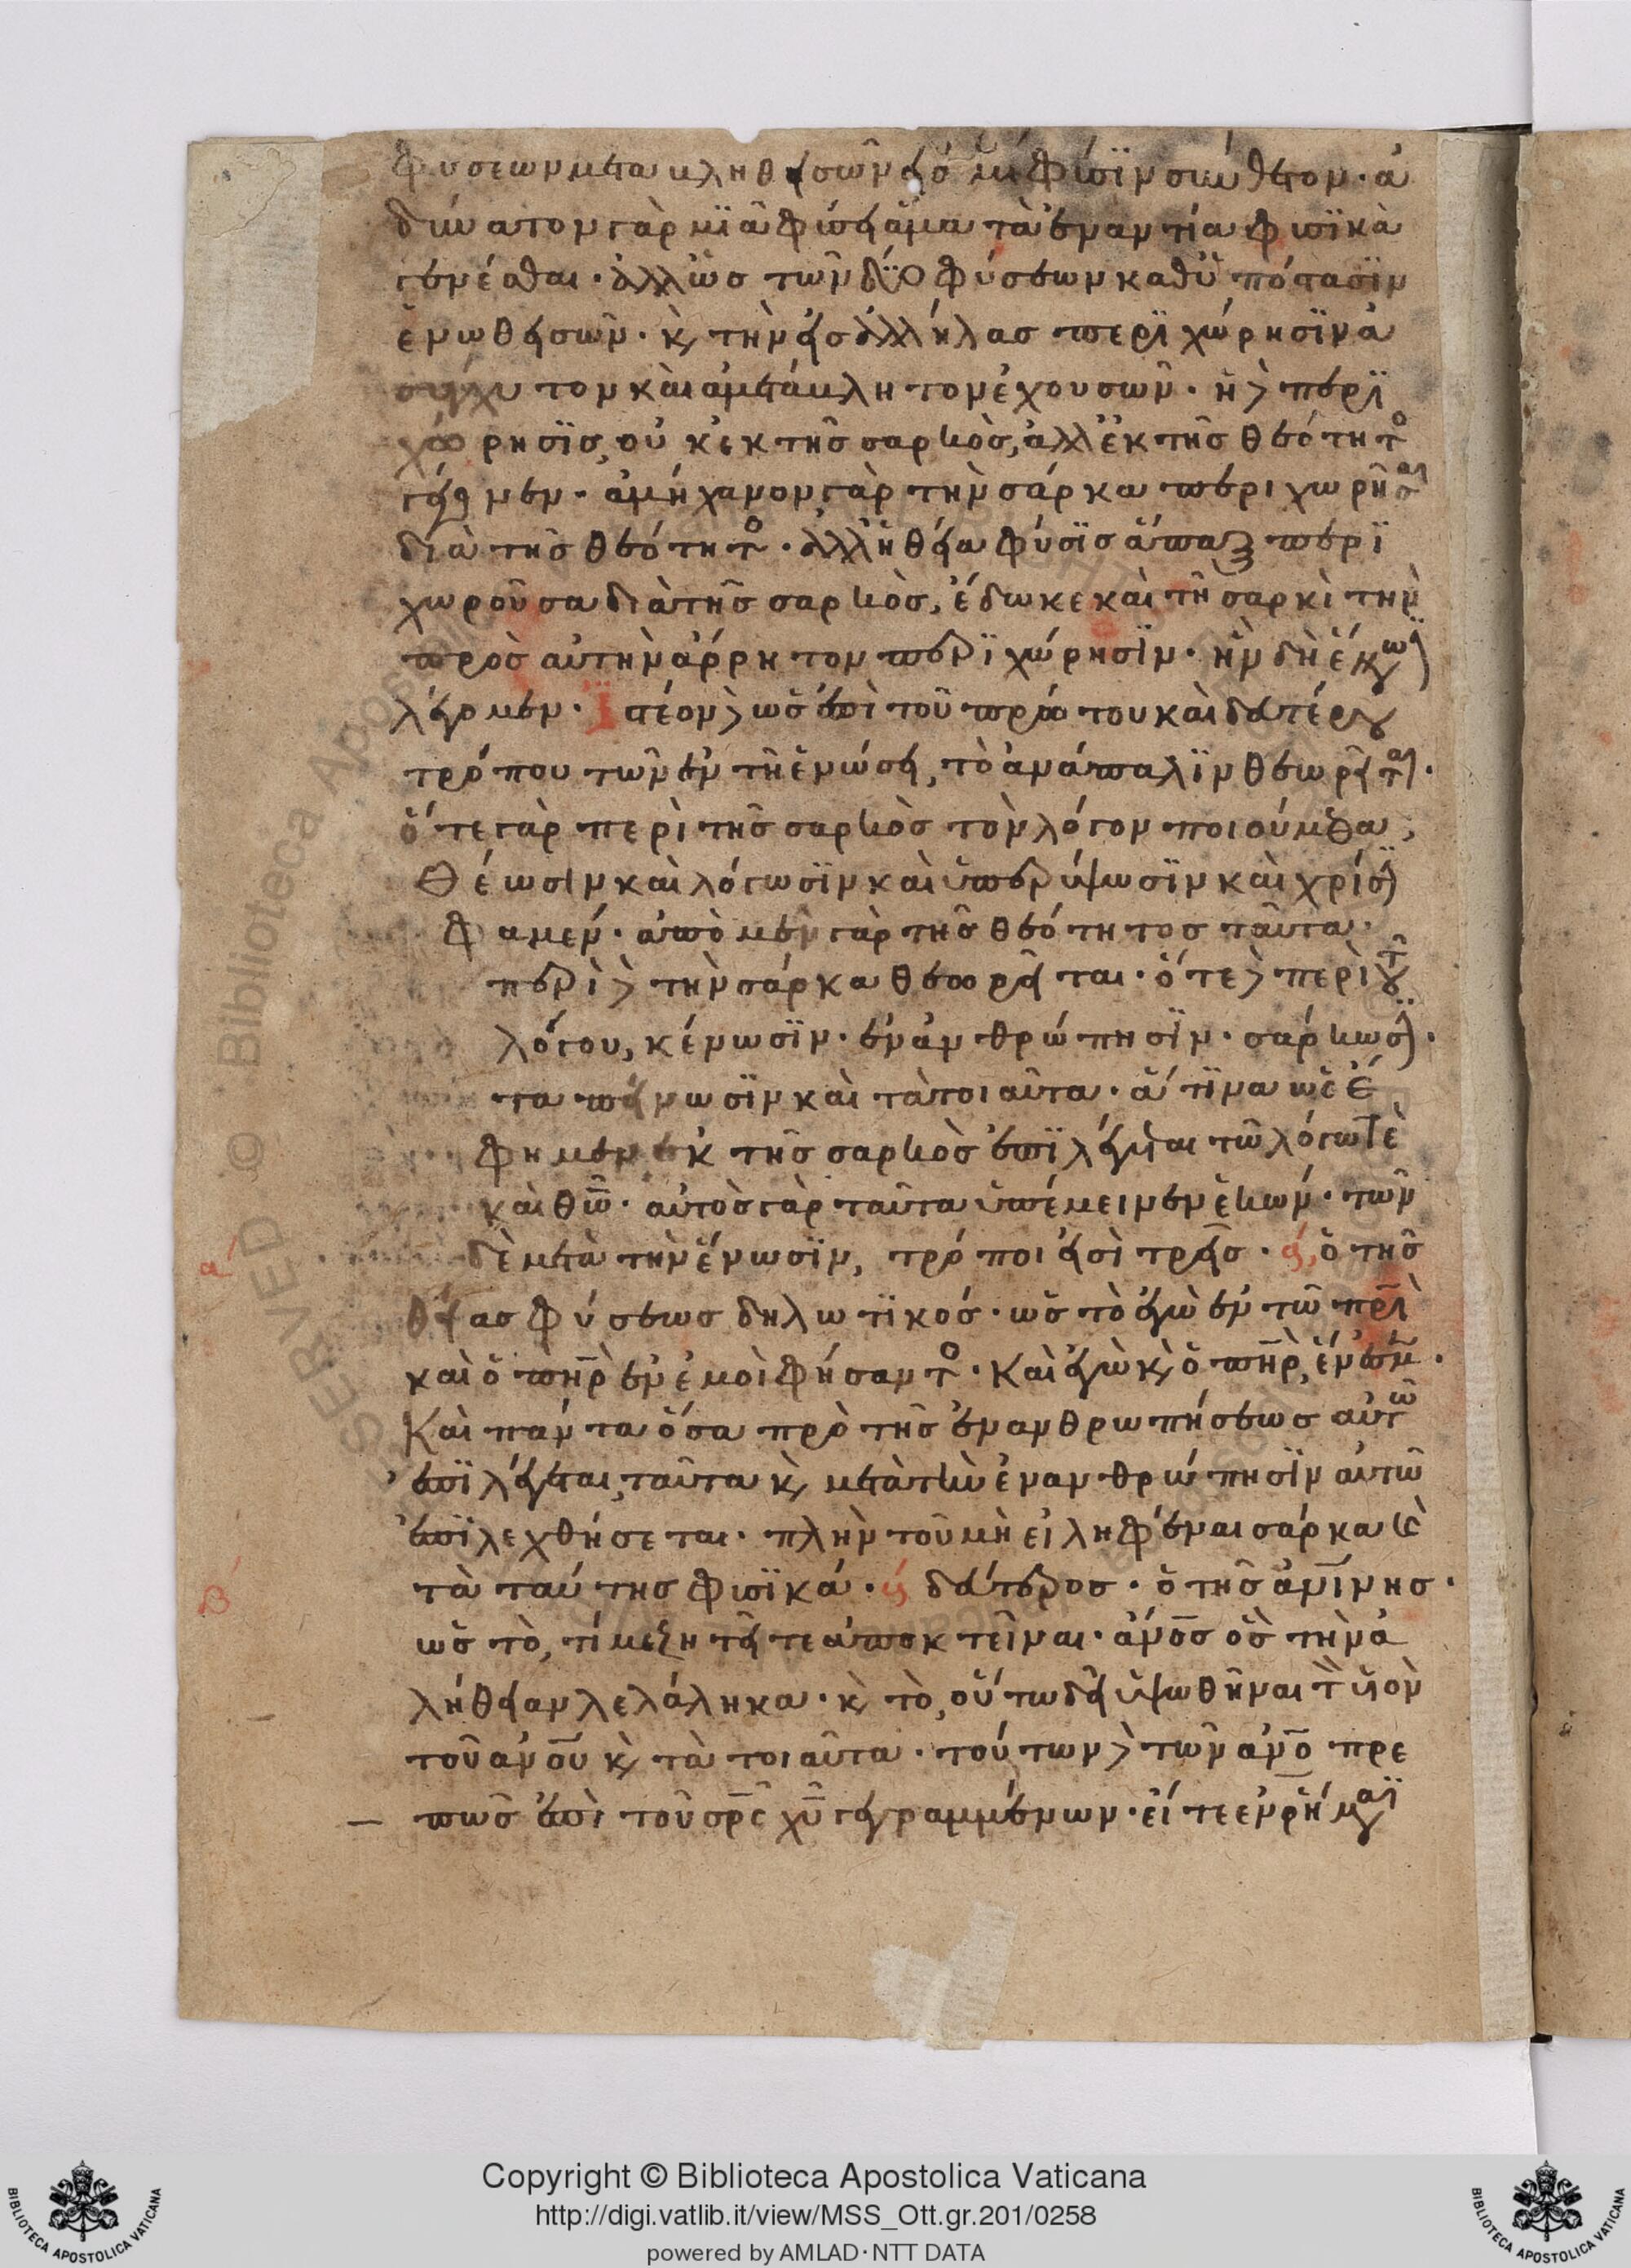 φύσεων μεταβληθεισῶν εἰς μίαν φύσιν σύνθετον· ἀ
δύνατον γὰρ μιᾷ φύσει ἅμα τὰ ἐναντία φυσικὰ
γενέσθαι· ἀλλ' ὡς τῶν δύο φύσεων καθ' ὑπόστασιν
ἑνωθεισῶν· καὶ τὴν εἰς ἀλλήλας περιχώρησιν ἀ
σύγχυτον καὶ ἀμετάβλητον ἐχουσῶν· ἡ δὲ περι
χώρησις, οὐκ ἐκ τῆς σαρκὸς, ἀλλ' ἐκ τῆς θεότητος
γέγονεν· ἀμήχανον γὰρ τὴν σάρκα περιχωρῆσαι
διὰ τῆς θεότητος· ἀλλ' ἡ θεία φύσις ἅπαξ περι
χωροῦσα διὰ τῆς σαρκὸς, ἔδωκε καὶ τῇ σαρκὶ τὴν
πρὸς αὐτὴν ἄρρητον περιχώρησιν· ἣν δὴ ἕνωσιν
λέγομεν· Ἰστέον δὲ ὡς ἐπὶ τοῦ πρώτου καὶ δευτέρου
τρόπου τῶν ἐν τῇ ἑνώσει, τὸ ἀνάπαλιν θεωρεῖται·
ὅτε γὰρ περὶ τῆς σαρκὸς τὸν λόγον ποιούμεθα,
θέωσιν καὶ λόγωσιν καὶ ὑπερύψωσιν καὶ χρίσιν
φαμέν· ἀπὸ μὲν γὰρ τῆς θεότητος ταῦτα·
περὶ δὲ τὴν σάρκα θεωρεῖται· ὅτε δὲ περὶ τοῦ
λόγου, κένωσιν· ἐνανθρώπησιν· σάρκωσιν·
ταπείνωσιν καὶ τὰ τοιαῦτα· ἅτινα ὡς ἔ
φημεν ἐκ τῆς σαρκὸς ἐπιλέγεται τῷ λόγῳ τε
καὶ θῶ· αὐτὸς γὰρ ταῦτα ὑπέμεινεν ἑκών· τῶν
δὲ μετὰ τὴν ἕνωσιν, τρόποι εἰσὶ τρεῖς· εἷς, ὁ τῆς
θείας φύσεως δηλωτικός· ὡς τὸ ἐγὼ ἐν τῷ πρὶ
καὶ ὁ πὴρ ἐν ἐμοὶ φήσαντος· Καὶ ἐγὼ καὶ ὁ πὴρ, ἕν ἐσμεν·
Καὶ πάντα ὅσα πρὸ τῆς ἐνανθρωπήσεως αὐτῷ
ἐπιλέγεται, ταῦτα καὶ μετὰ τὴν ἐνανθρώπησιν αὐτῷ
ἐπιλεχθήσεται· πλὴν τοῦ μὴ εἰληφέναι σάρκα καὶ
τὰ ταύτης φυσικά· δεύτερος· ὁ τῆς ἀνίνης·
ὡς τὸ, τί με ζητεῖτε ἀποκτεῖναι· ἄνος ὃς τὴν ἀ
λήθειαν λελάληκα· καὶ τὸ, οὕτω δεῖ ὑψωθῆναι τὸν υἱὸν
τοῦ ἀνου καὶ τὰ τοιαῦτα· τούτων δὲ τῶν ἀνο πρε
πῶς ἐπὶ τοῦ σρς χυ γεγραμμένων· εἴτε ἐν ῥήμασι